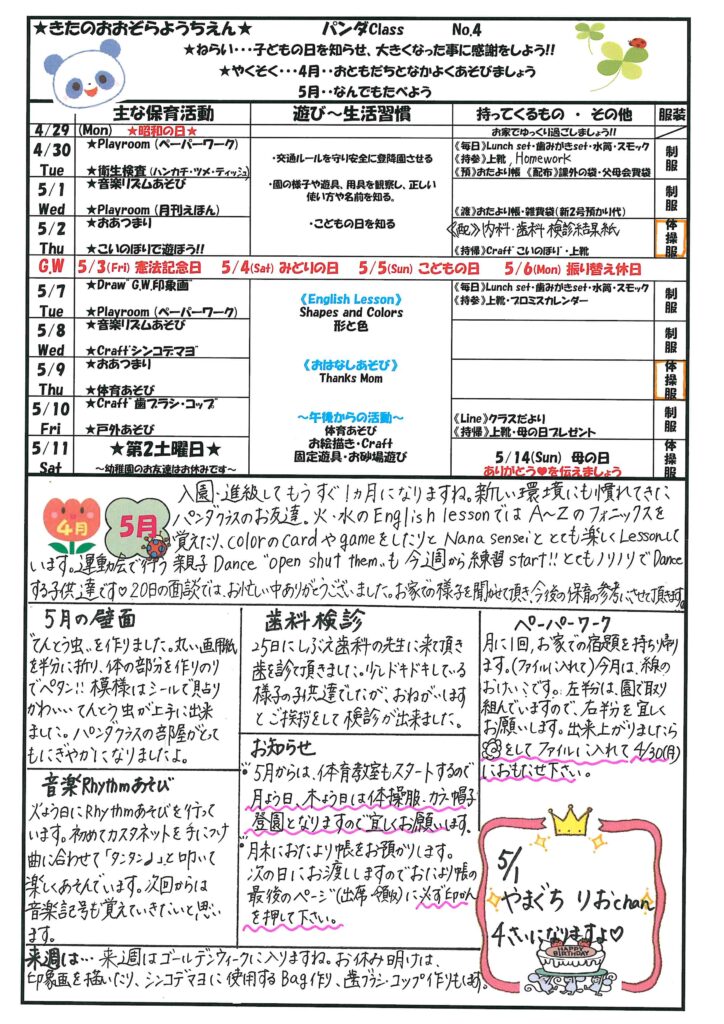 ★きたのおおぞらようちえん★ パンダClass No.4
★ねらい・・・子どもの日を知らせ、大きくなった事に感謝をしよう!!
★やくそく・・・4月・・おともだちとなかよくあそびましょう
5月・・なんでもたべよう
主な保育活動 遊び～生活習慣 持ってくるもの ・ その他 服装
4/29 (Mon) ★昭和の日★ お家でゆっくり過ごしましょう!!
4/30 Tue
★Playroom (ペーパーワーク)
★衛生検査 (ハンカチ・ツメ・ティッシュ)
・交通ルールを守り安全に登降園させる
《毎日》Lunch set・歯みがきset・水筒・スモック
《持参》上靴, Homework
《預》おたより帳 《配布》課外の袋・父母会費袋
制服
5/1 Wed
★音楽リズムあそび
★Playroom (月刊えほん)
・園の様子や遊具、用具を観察し、正しい
使い方や名前を知る。
《渡》おたより帳・雑貨袋(新2号預かり代)
制服
5/2 Thu
★おあつまり
★こいのぼりで遊ぼう!!
・こどもの日を知る
《配》内科・歯科検診結果紙
《持帰》Craft"こいのぼり"・上靴
体操服
G,W 5/3(Fri) 憲法記念日 5/4(Sat) みどりの日 5/5(Sun) こどもの日 5/6(Mon) 振り替え休日
5/7 Tue
★Draw"G,W,印象画"
★Playroom (ペーパーワーク)
《English Lesson》
Shapes and Colors
形と色
《毎日》Lunch set・歯みがきset・水筒・スモック
《持参》上靴・プロミスカレンダー
制服
5/8 Wed
★音楽リズムあそび
★Craft"シンコデマヨ"
制服
5/9 Thu
★おあつまり
★体育あそび
《おはなしあそび》
Thanks Mom
体操服
5/10 Fri
★Craft"歯ブラシ・コップ"
★戸外あそび
～午後からの活動～
体育あそび
お絵描き・Craft
固定遊具・お砂場遊び
《Line》クラスだより
《持帰》上靴・母の日プレゼント
制服
5/11 Sat
★第2土曜日★
～幼稚園のお友達はお休みです～
5/14(Sun) 母の日
ありがとう♥を伝えましょう
体操服
4月 5月
入園・進級してもうすぐ1ヵ月になりますね。新しい環境にも慣れてきた
パンダクラスのお友達。火・水のEnglish lessonではA～Zのフォニックスを
覚えたり、colorのcardやgameをしたりとNana senseiととても楽しくLessonして
います。運動会で行う親子Dance "open shut them"も今週から練習start!! とてもノリノリでDance
する子供達です♡20日の面談では、お忙しい中ありがとうございました。お家での様子を聞かせて頂き、今後の保育の参考にさせて頂きます。
5月の壁面
"てんとう虫"を作りました。丸い画用紙
を半分に折り、体の部分を作りのり
でペタン!! 模様はシールで貼り
かわいいてんとう虫が上手に出来
ました。パンダクラスの部屋がとって
もにぎやかになりましたよ。
音楽Rhythmあそび
火よう日にRhythmあそびを行って
います。初めてカスタネットを手につけ
曲に合わせて「タンタン♩」と叩いて
楽しくあそんでいます。次回からは
音楽記号も覚えていきたいと思い
ます。
歯科検診
25日にしぶえ歯科の先生に来て頂き
歯を診て頂きました。少しドキドキしている
様子の子供達でしたが、おねがいします
とご挨拶をして検診が出来ました。
お知らせ
・5月からは、体育教室もスタートするので
月よう日、木よう日は体操服、カラー帽子
登園となりますので宜しくお願いします。
・月末におたより帳をお預かします。
次の日にお渡ししますのでおたより帳の
最後のページ(出席・領収)に必ず印かん
を押して下さい。
ペーパーワーク
月に1回、お家での宿題を持ち帰り
ます。(ファイルに入れて)今月は、線の
おけいこです。左半分は、園で取り
組んでいますので、右半分を宜しく
お願いします。出来上がりましたら
をしてファイルに入れて4/30(月)
におもたせ下さい。
5/1
やまぐち りおchan
4さいになりますよ♡
HAPPY BIRTHDAY
来週は… 来週はゴールデンウィークに入りますね。お休み明けは、
印象画を描いたり、シンコデマヨに使用するBag作り、歯ブラシ・コップ作りもします。